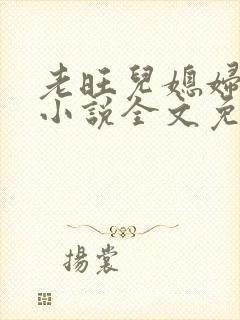 老旺兒媳婦
小說全文免
揚裳